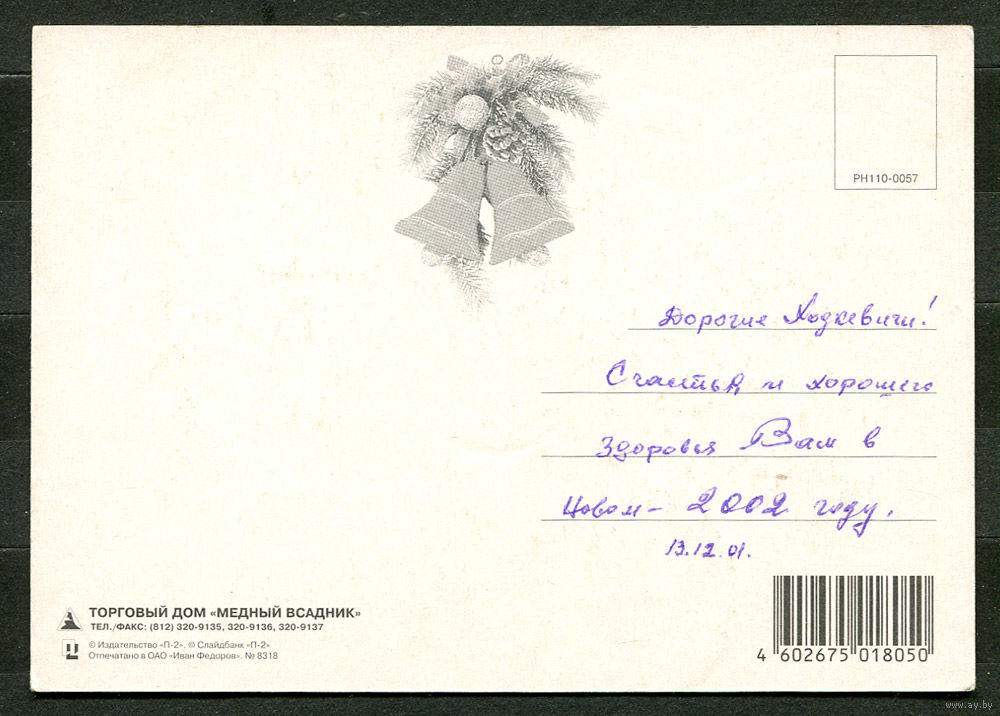 РН110-0057
Дорогие Ходкевичи!
Счастья и хорошего
здоровья Вам в
Новом - 2002 году.
13.12.01.
ТОРГОВЫЙ ДОМ «МЕДНЫЙ ВСАДНИК»
ТЕЛ./ФАКС: (812) 320-9135, 320-9136, 320-9137
© Издательство «П-2». © Слайдбанк «П-2»
Отпечатано в ОАО «Иван Федоров». № 8318
4 602675 018050
www.ay.by